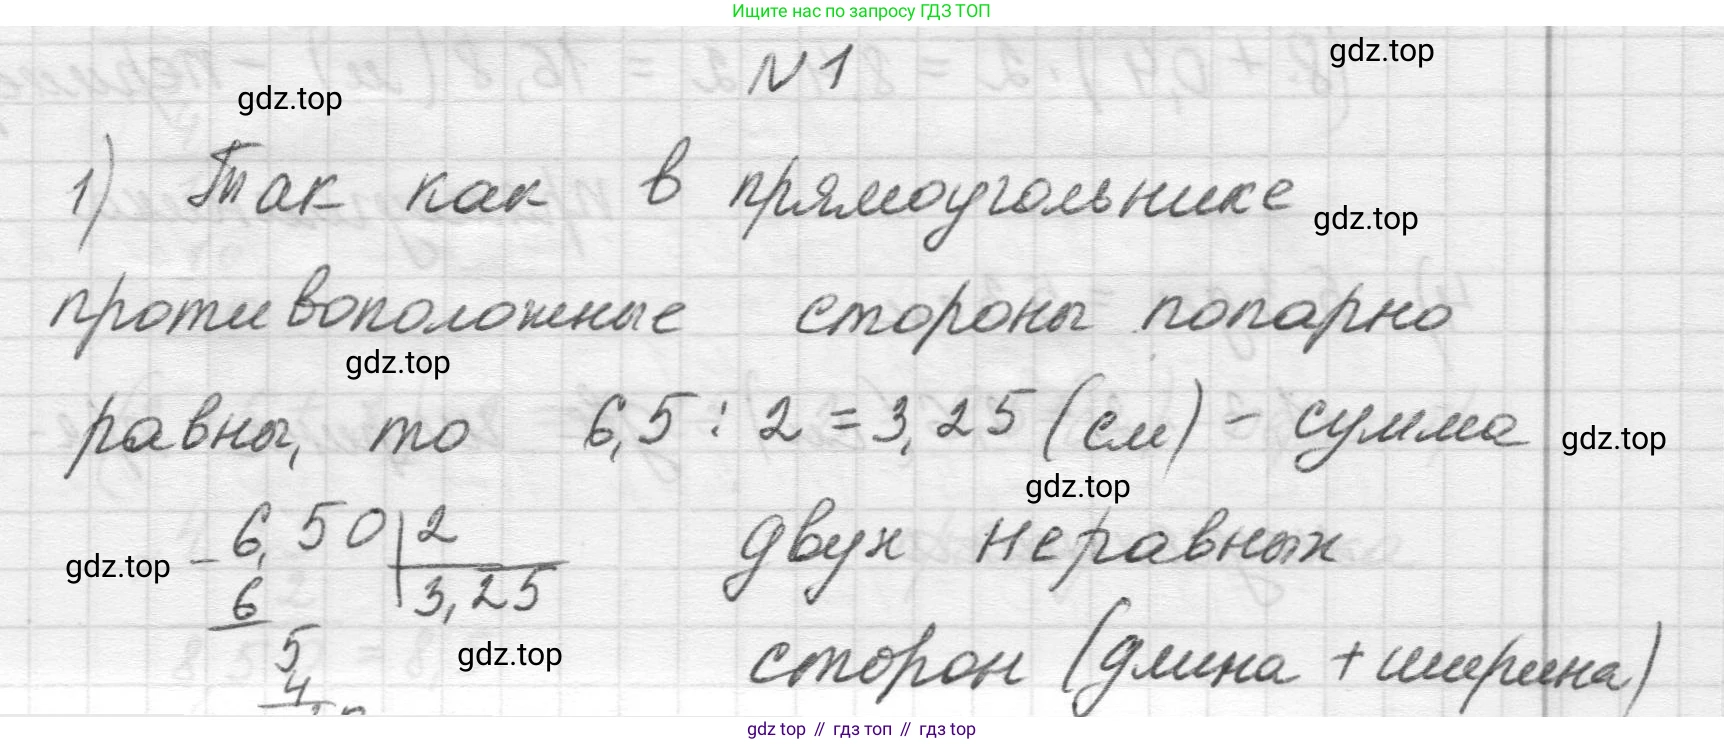 Ищите нас по запросу ГДЗ ТОП
gdz.top
N 1
gdz.top
1) Так как в прямоугольнике
gdz.top
противоположные стороны попарно
gdz.top
равны, то 6,5 : 2 = 3,25 (см) - сумма
gdz.top
gdz.top
- 6,50 | 2
двух неравных
gdz.top
6
3,25
5
gdz.top
сторон (длина + ширина)
4
10
gdz top // гдз топ // gdz top